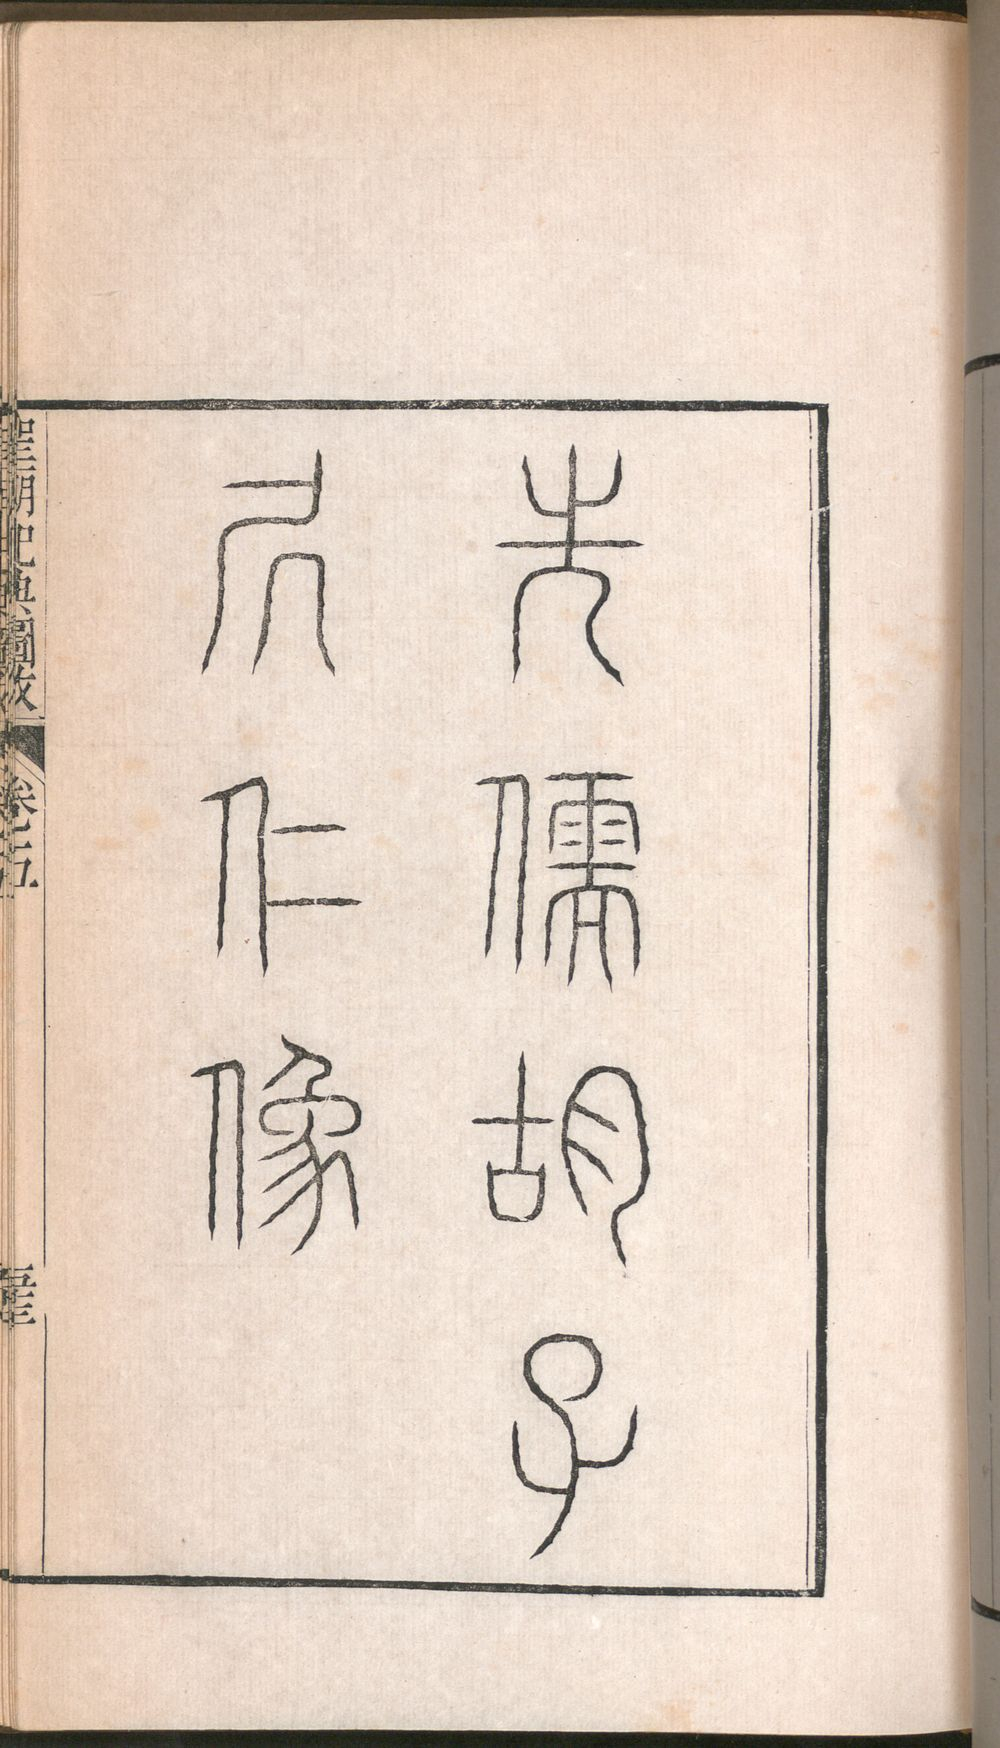 先儒胡子
居仁像
聖廟祀典圖攷
卷五